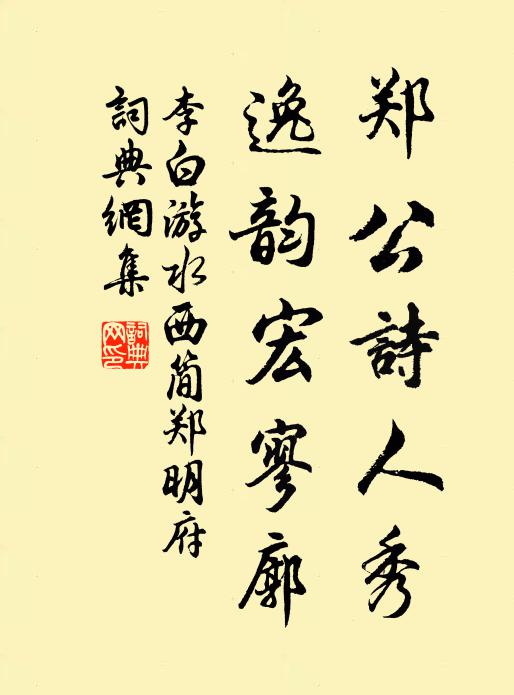 郑公詩人秀
逸韵宏寥廓
李白游水西简郑明府
詞典網集
詞典網印